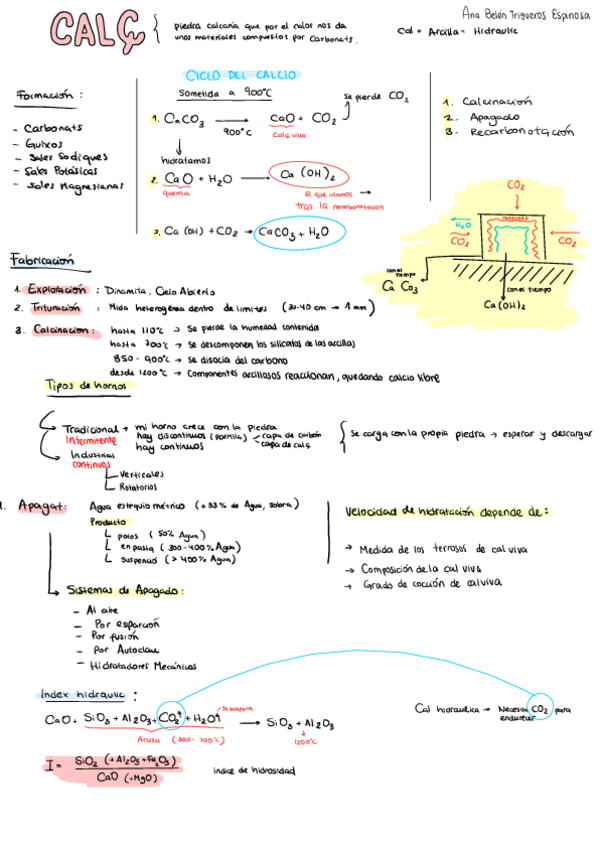 CALÇ
piedra calcaria que por el calor nos da
unos materiales compuestos por Carbonats.
Ana Belén Trigueros Espinosa
Cal + Arcilla - Hidraulic
CICLO DEL CALCIO
Formación :
- Carbonats
- Guixos
- Sales Sodiques
- Sales Potásicas
- Sales Magnesianas
Sometida a 900°C
se pierde CO2
1. CaCO3 → CaO + CO2
900°C
Cal viva
hidratamos
2. CaO + H2O → Ca (OH)2
quema
El que usamos →
tras la recarbonatación
3. Ca (OH) + CO2 → CaCO3 + H2O
1. Calcinación
2. Apagado
3. Recarbonatación
CO2
H2O
CO2
CO2
con el tiempo
Ca CO3
con el tiempo
Ca(OH)2
Fabricación
1. Explotación : Dinamita, Cielo Abierto
2. Trituración : Mida heterogenea dentro de limites (30-40 cm → 1 mm)
3. Calcinacion : hasta 110°C → Se pierde la humedad contenida
hasta 700°C → Se descomponen los silicatos de las arcillas
850 - 900°C → Se disocia del carbono
desde 1200°C → Componentes arcillosos reaccionan, quedando calcio libre
Tipos de hornos
Tradicional → mi horno crece con la piedra
Intermitente hay discontinuos (parrilla) capa de carbón
capa de calç
hay continuos
Se carga con la propia piedra → esperar y descargar
Industrial
continuos
Verticales
Rotatorios
Apagat: Agua estequiométrico (+33% de Agua, sobra)
Producto
polos (50% Agua)
en pasta (300-400% Agua)
suspenció (>400% Agua)
Velocidad de hidratación depende de:
→ Medida de los terrosos de cal viva
→ Composición de la cal viva
→ Grado de cocción de cal viva
Sistemas de Apagado:
- Al aire
- Por fusión
- Por Autoclau
- Hidratadores Mecánicos
Index hidraulic :
Se evapora
CaO + SiO3 + Al2O3 + CO2↑ + H2O↑ → SiO3 + Al2O3
Arcilla (300-700°C)
1200°C
Cal hidraulica → Necesita CO2 para
endurecer
I = SiO2 (+Al2O3+Fe2O3)
CaO (+MgO)
indice de hidrosidad